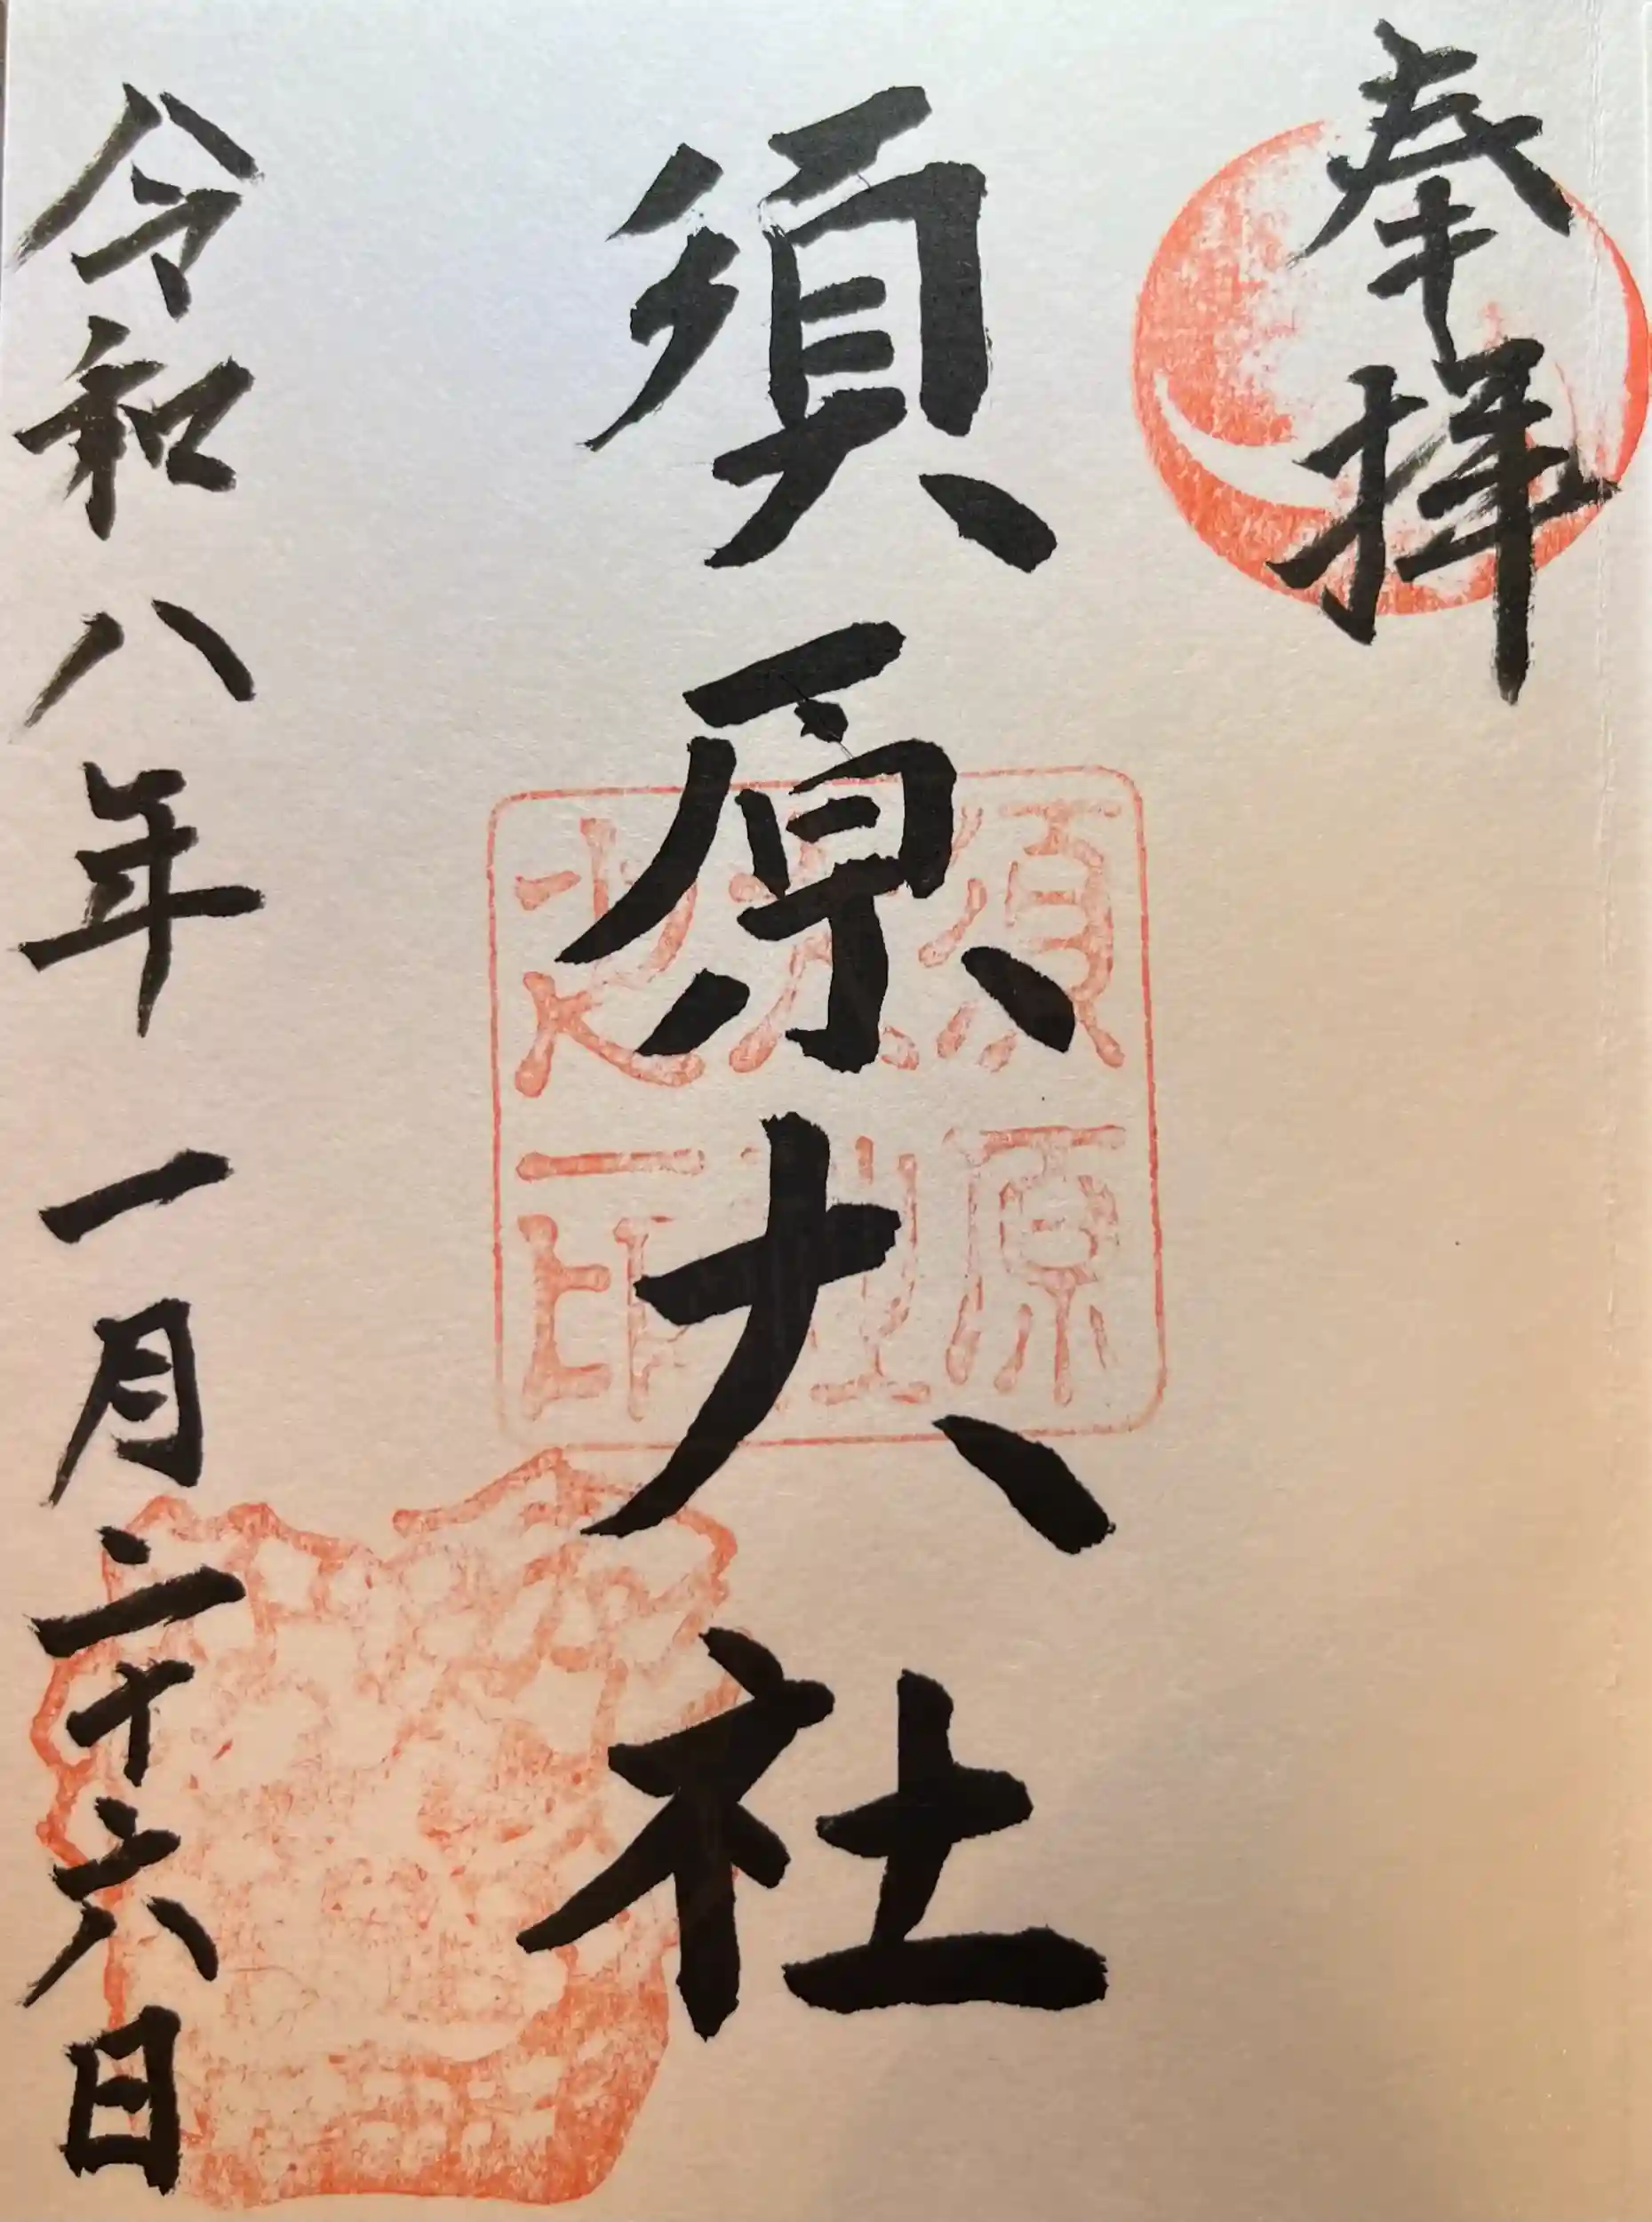 奉拝
須原大社
須原
大社
之印
令和八年一月二十六日